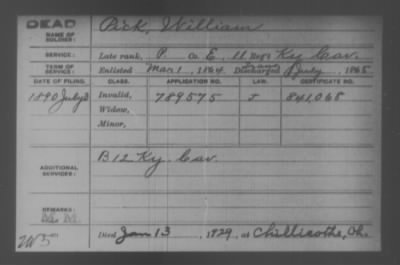 DEAD
NAME OF SOLDIER: Pick, William
SERVICE: Late rank, P Co. E, 11 Reg't Ky Cav.
TERM OF SERVICE: Enlisted Mar 1, 1864 Discharged July, 1865
DATE OF FILING. CLASS. APPLICATION NO. LAW. CERTIFICATE NO.
1890 July 3 Invalid, 789575 J 841,068
Widow,
Minor,
ADDITIONAL SERVICES: B 12 Ky. Cav.
REMARKS:
Died Jan 13, 1929, at Chillicothe, Oh.